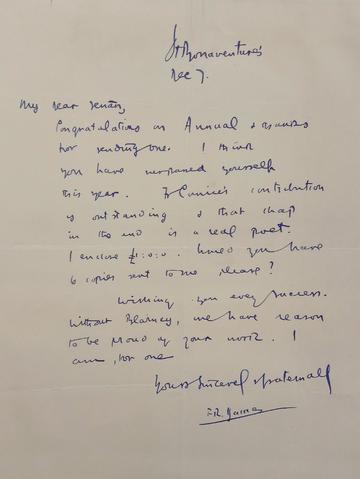 St Bonaventure's
Dec 7.
My dear
Congratulations on Annual & thanks
for sending one. I think
you have surpassed yourself
this year. Fr Canice's contribution
is outstanding & that chap
in the end is a real poet.
I enclose £1:0:0. Would you have
6 copies sent to me please?
Wishing you every success.
Without Blarney, we have reason
to be proud of your work. I
am, for one
Yours sincerely & fraternally
Fr. James